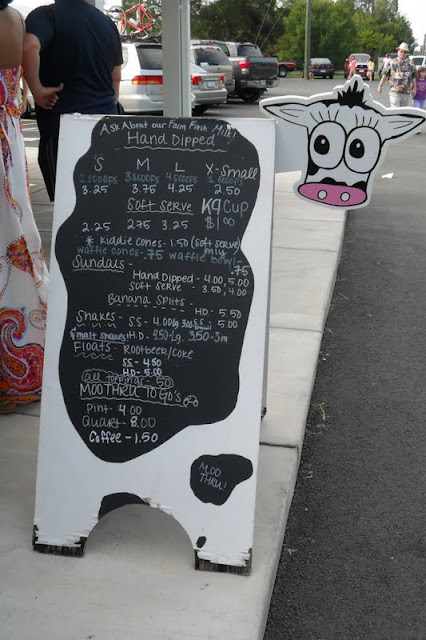 Ask About our Farm Fresh Milk!
Hand Dipped
S M L X-Small
2 scoops 3 scoops 4 scoops 1 scoops
3.25 3.75 4.25 2.50
Soft Serve K9 Cup
2.25 2.75 3.25 $1.00
* kiddie cones - 1.50 (soft serve) only
waffle cones - .75 waffle bowl - .75
Sundais
Hand Dipped - 4.00, 5.00
Soft Serve - 3.50, 4.00
Banana Splits
HD - 5.50
Shakes - S.S - 4.00 Lg S.S 5.00
& malt shakes H.D - Lg 3.50 - Sm
Floats - Rootbeer/Coke
S.S - 4.50
H.D - 5.00
(all toppings - 50
MOO THRU To Go's
Pint - 4.00
Quart - 8.00
Coffee - 1.50
MOO
THRU!